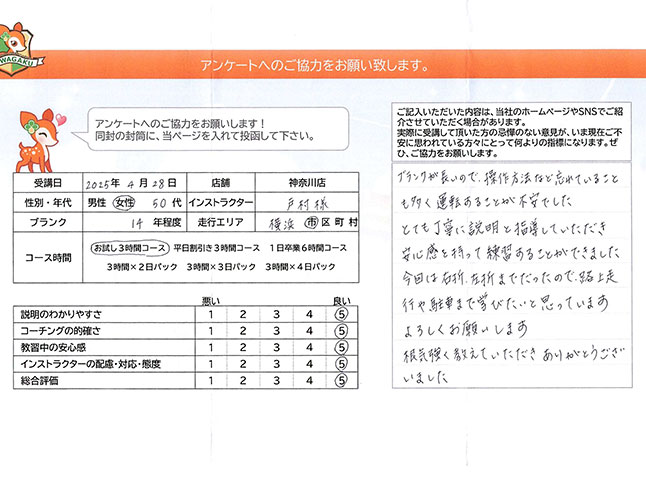 WAGAKU
アンケートへのご協力をお願い致します。
アンケートへのご協力をお願いします!
同封の封筒に、当ページを入れて投函して下さい。
ご記入いただいた内容は、当社のホームページやSNSでご紹介させていただく場合があります。
実際に受講して頂いた方の忌憚のない意見が、いま現在ご不安に思われている方々にとって何よりの指標になります。ぜひ、ご協力をお願いします。
受講日 2025年 4月 28日 店舗 神奈川店
性別・年代 男性 女性 50代 インストラクター 戸村様
ブランク 14年程度 走行エリア 横浜 市区町村
コース時間 お試し3時間コース 平日割引き3時間コース 1日卒業6時間コース
3時間×2日パック 3時間×3日パック 3時間×4日パック
悪い 良い
説明のわかりやすさ 1 2 3 4 5
コーチングの的確さ 1 2 3 4 5
教習中の安心感 1 2 3 4 5
インストラクターの配慮・対応・態度 1 2 3 4 5
総合評価 1 2 3 4 5
ブランクが長いので、操作方法など忘れていること
も多く運転することが不安でした
とても丁寧に説明と指導していただき
安心感を持って練習することができました
今回は右折、左折までだったので、路上走
行や駐車まで学びたいと思っています
よろしくお願いします
根気強く教えていただきありがとうござ
いました